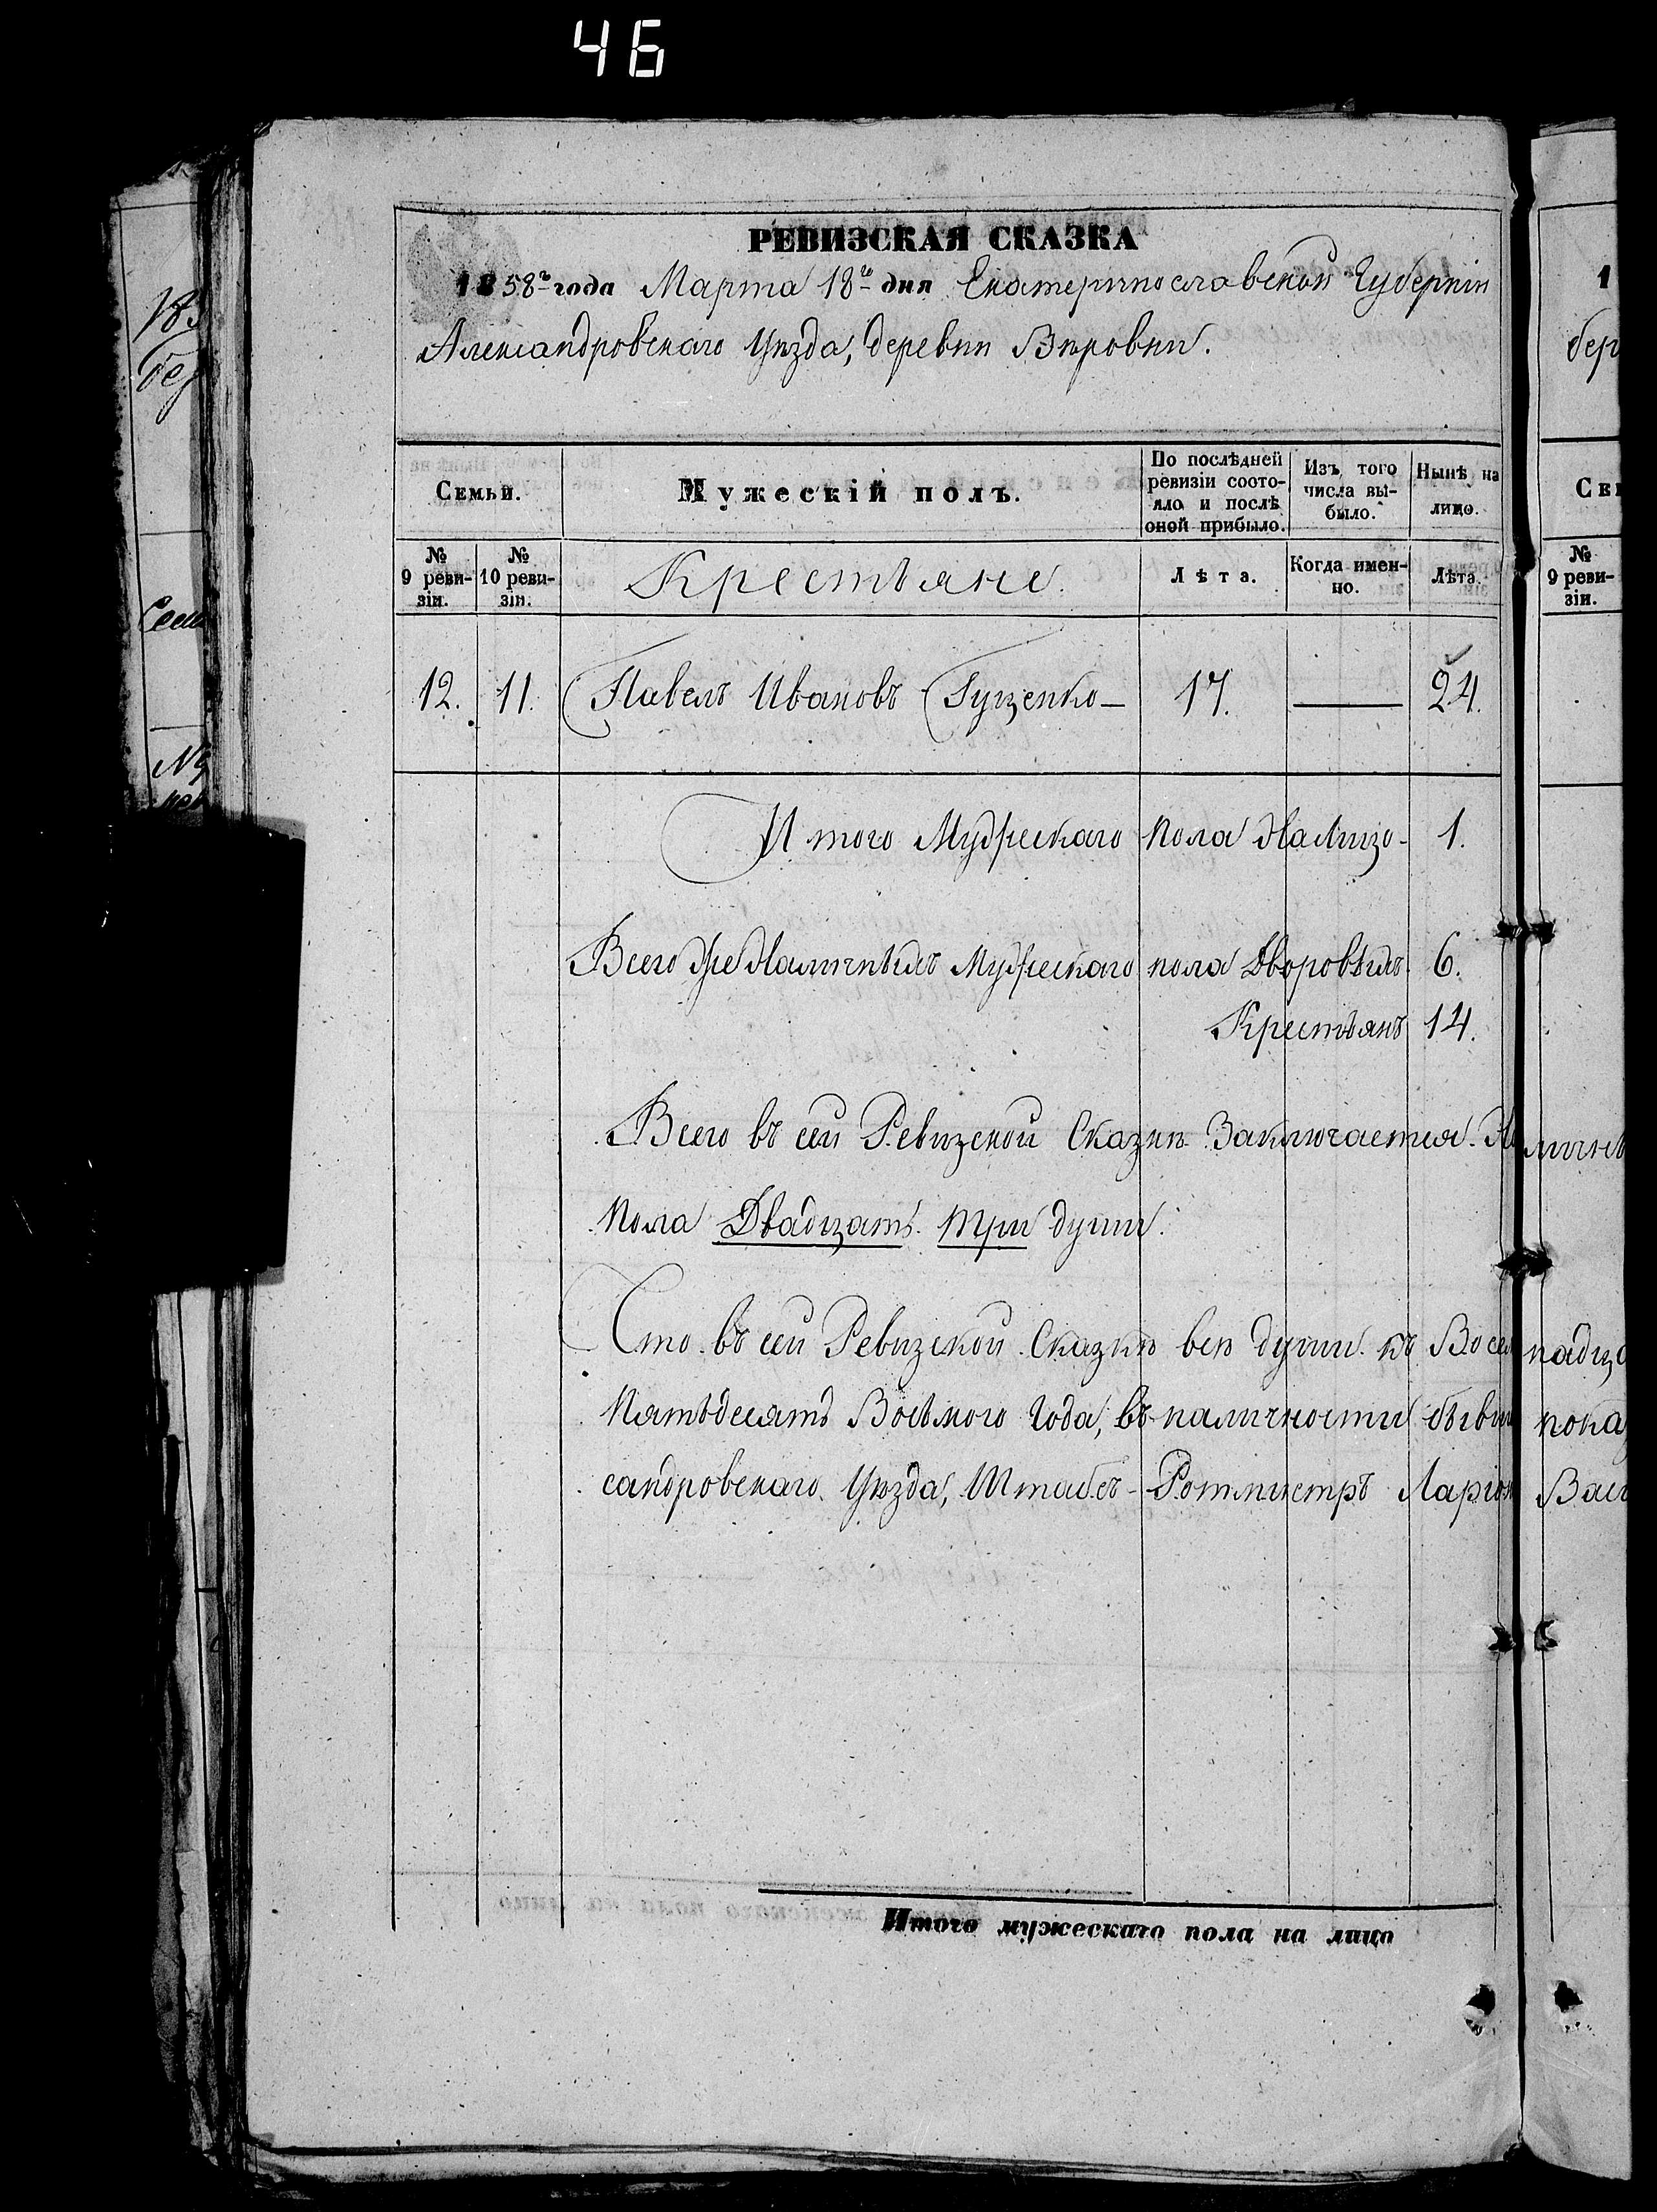 46
РЕВИЗСКАЯ СКАЗКА
1858го года Марта 18го дня Екатеринославской Губерніи
Александровскаго Уѣзда, деревни Вѣровки.
Семьи.
Мужескій полъ.
По послѣдней ревизіи состояло и послѣ оной прибыло.
Изъ того числа выбыло.
Нынѣ на лицо.
№ 9 ревизіи.
№ 10 ревизіи.
Крестьяне.
Лѣта.
Когда именно.
Лѣта.
12. 11. Павелъ Ивановъ Гуценко — 17. — 24.
Итого Мужескаго пола На Лицо - 1.
Всего же Наличныхъ Мужескаго пола Дворовыхъ 6.
Крестьянъ 14.
Всего въ сей Ревизской Сказкѣ Заключается На личнѣ
Пола Двадцать три души.
Что въ сей Ревизской Сказкѣ всѣ души къ Восем надца
Пятьдесятъ Восьмого Года, въ наличности бывш пока
сандровскаго Уѣзда, Штабсъ-Ротмистръ Ларіон Васи
Итого мужескаго пола на лицо
183
бер
Сем
1
бер
Се
№
9 ревизіи.